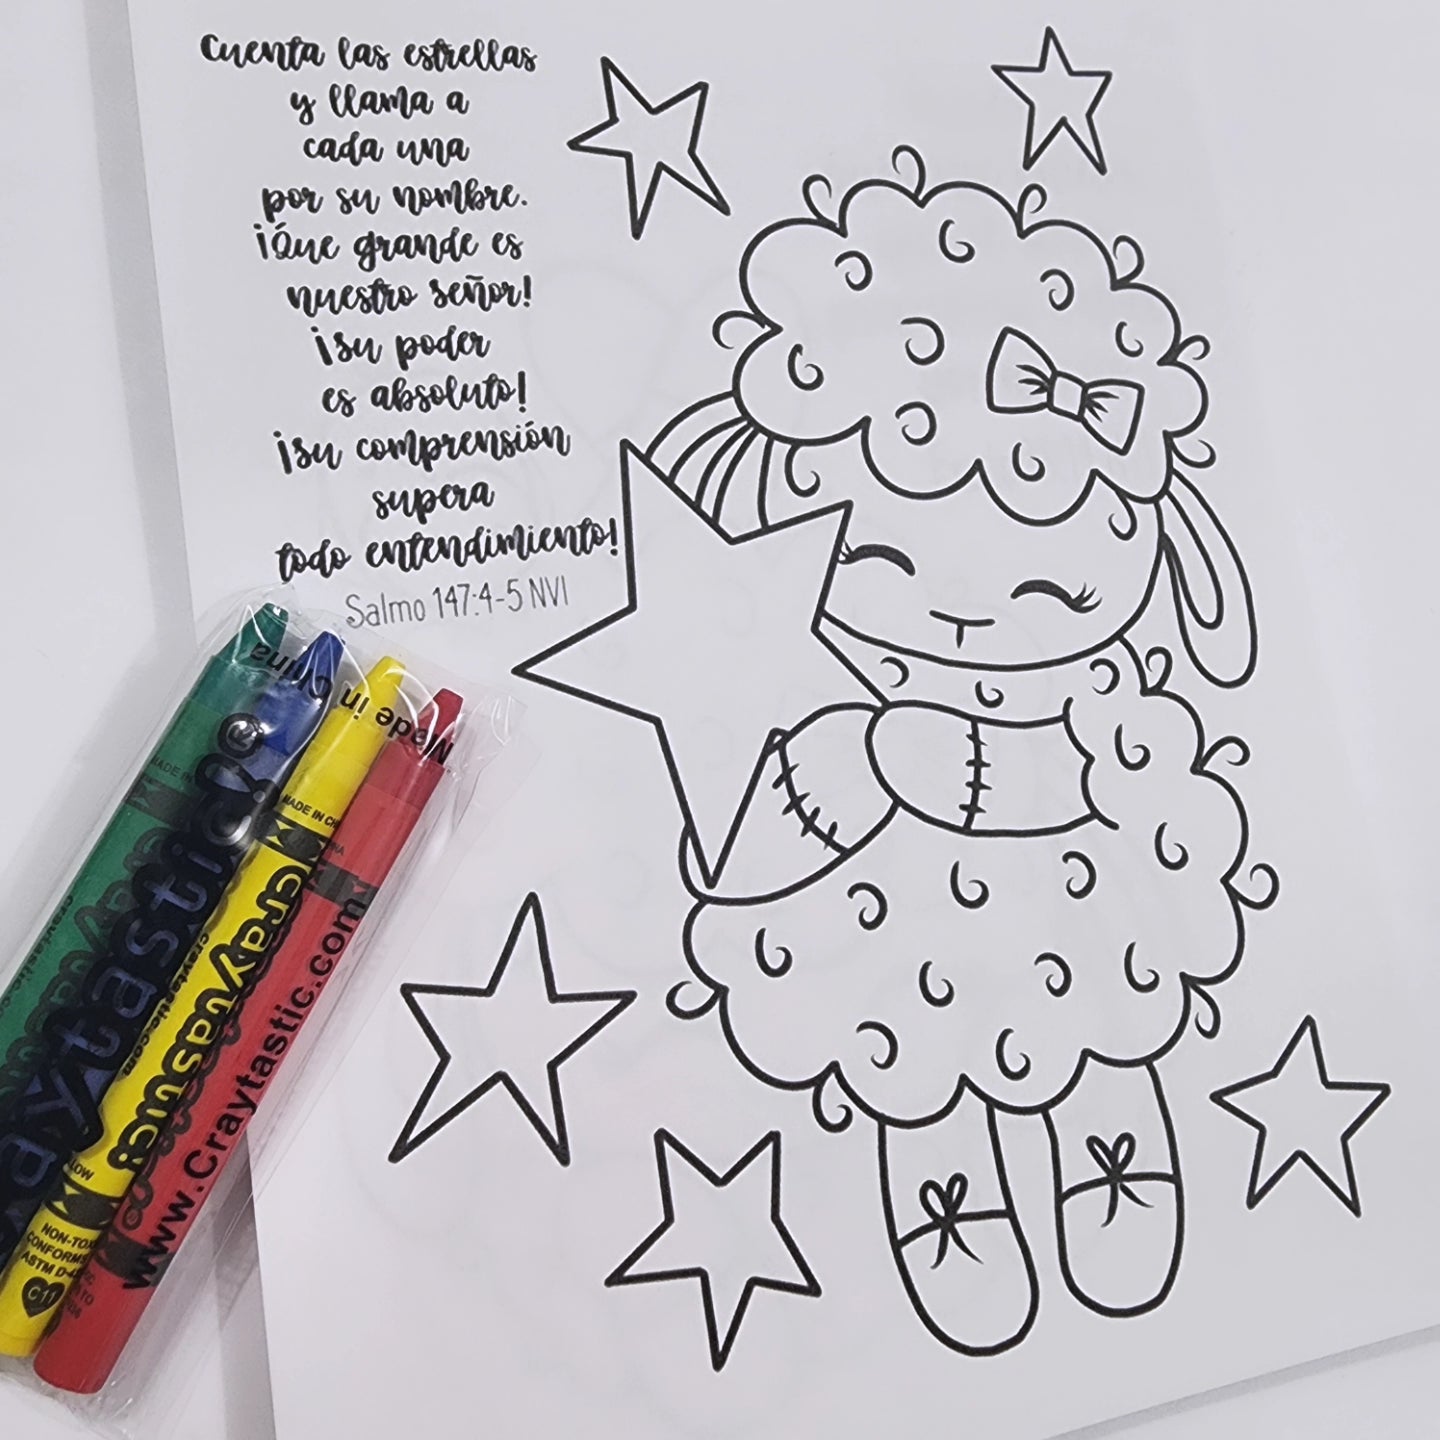 Cuenta las estrellas
y llama a
cada una
por su nombre.
¡Que grande es
nuestro señor!
¡su poder
es absoluto!
¡su comprensión
supera
todo entendimiento!
Salmo 147:4-5 NVI
Made in China
MADE IN
MADE IN CHINA
craytastic!
craytastic!
www.Craytastic.com
NON-TOXIC
CONFORMS
ASTM D-4
C11